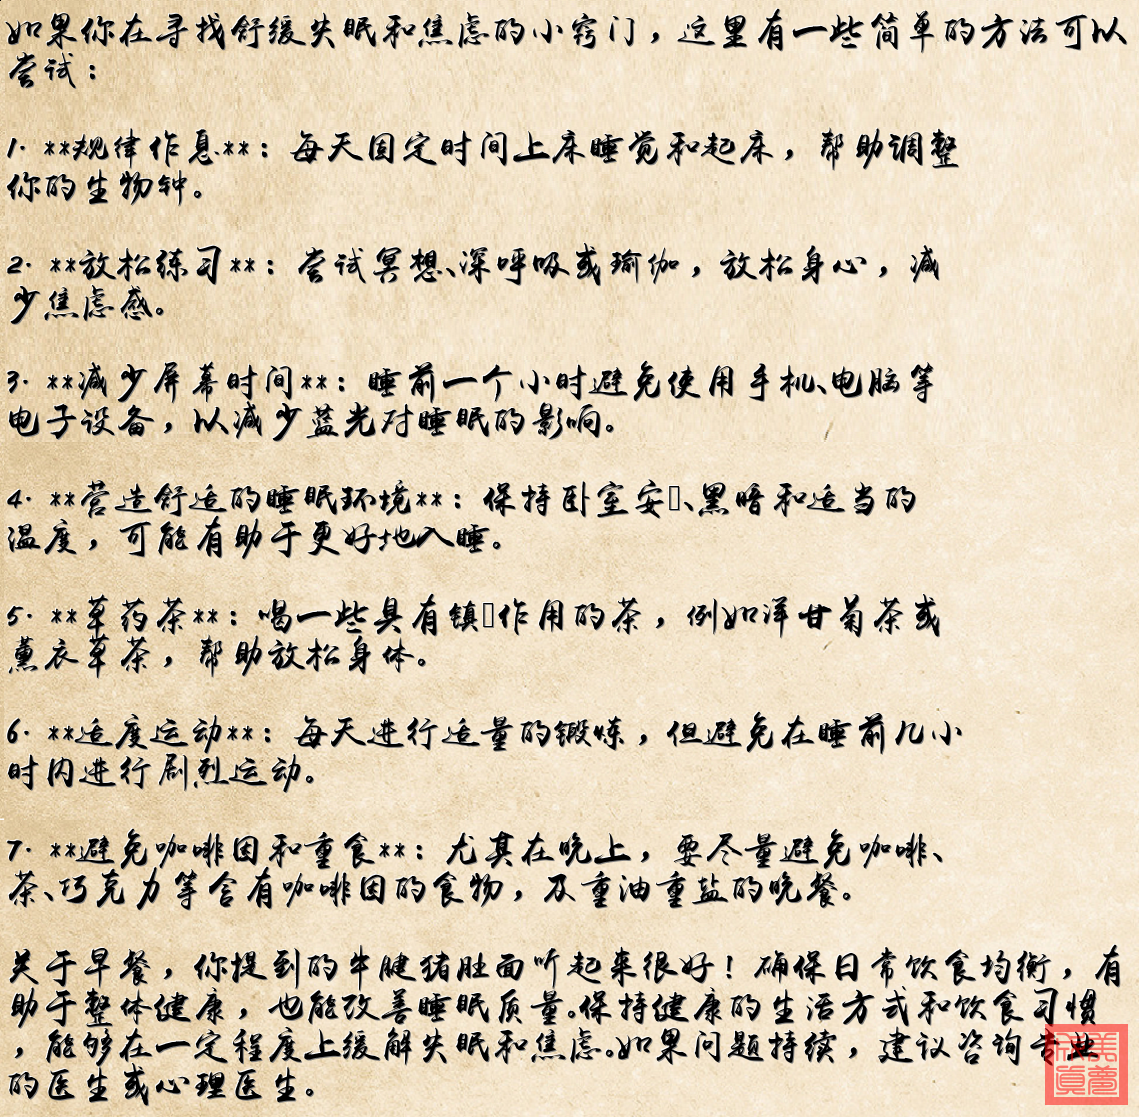 如果你在寻找舒缓失眠和焦虑的小窍门，这里有一些简单的方法可以
尝试：
1. **规律作息**：每天固定时间上床睡觉和起床，帮助调整
你的生物钟。
2. **放松练习**：尝试冥想、深呼吸或瑜伽，放松身心，减
少焦虑感。
3. **减少屏幕时间**：睡前一个小时避免使用手机、电脑等
电子设备，以减少蓝光对睡眠的影响。
4. **营造舒适的睡眠环境**：保持卧室安、黑暗和适当的
温度，可能有助于更好地入睡。
5. **草药茶**：喝一些具有镇作用的茶，例如洋甘菊茶或
薰衣草茶，帮助放松身体。
6. **适度运动**：每天进行适量的锻炼，但避免在睡前几小
时内进行剧烈运动。
7. **避免咖啡因和重食**：尤其在晚上，要尽量避免咖啡、
茶、巧克力等含有咖啡因的食物，及重油重盐的晚餐。
关于早餐，你提到的牛腱猪肚面听起来很好！确保日常饮食均衡，有
助于整体健康，也能改善睡眠质量。保持健康的生活方式和饮食习惯
，能够在一定程度上缓解失眠和焦虑。如果问题持续，建议咨询专业
的医生或心理医生。